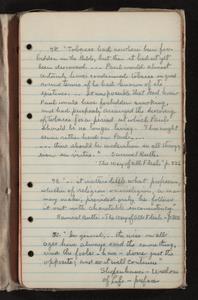 48. "Tobacco had nowhere been for-
bidden in the Bible, but then it had not yet
been discovered .... Paul would almost
certainly have condemned tobacco in good
round terms if he had known of its
existence .... it was possible that God knew
Paul would have forbidden smoking,
and had purposely arranged the discovery
of tobacco for a period at which Paul
should be no longer living. This might
seem rather hard on Paul ....
there should be moderation in all things
even in virtue." Samuel Butler
"The Way of All Flesh" p.
49. ".... it matters little what profession,
whether of religion or irreligion, a man
may make, provided only he follows
it out with charitable inconsistency"
Samuel Butler - The Way of All Flesh - p.
50. "In general, ... the wise in all
ages have always said the same thing,
and the fools ... have ... always just the
opposite; and so it will continue."
Schopenhauer - Wisdom
of Life - preface